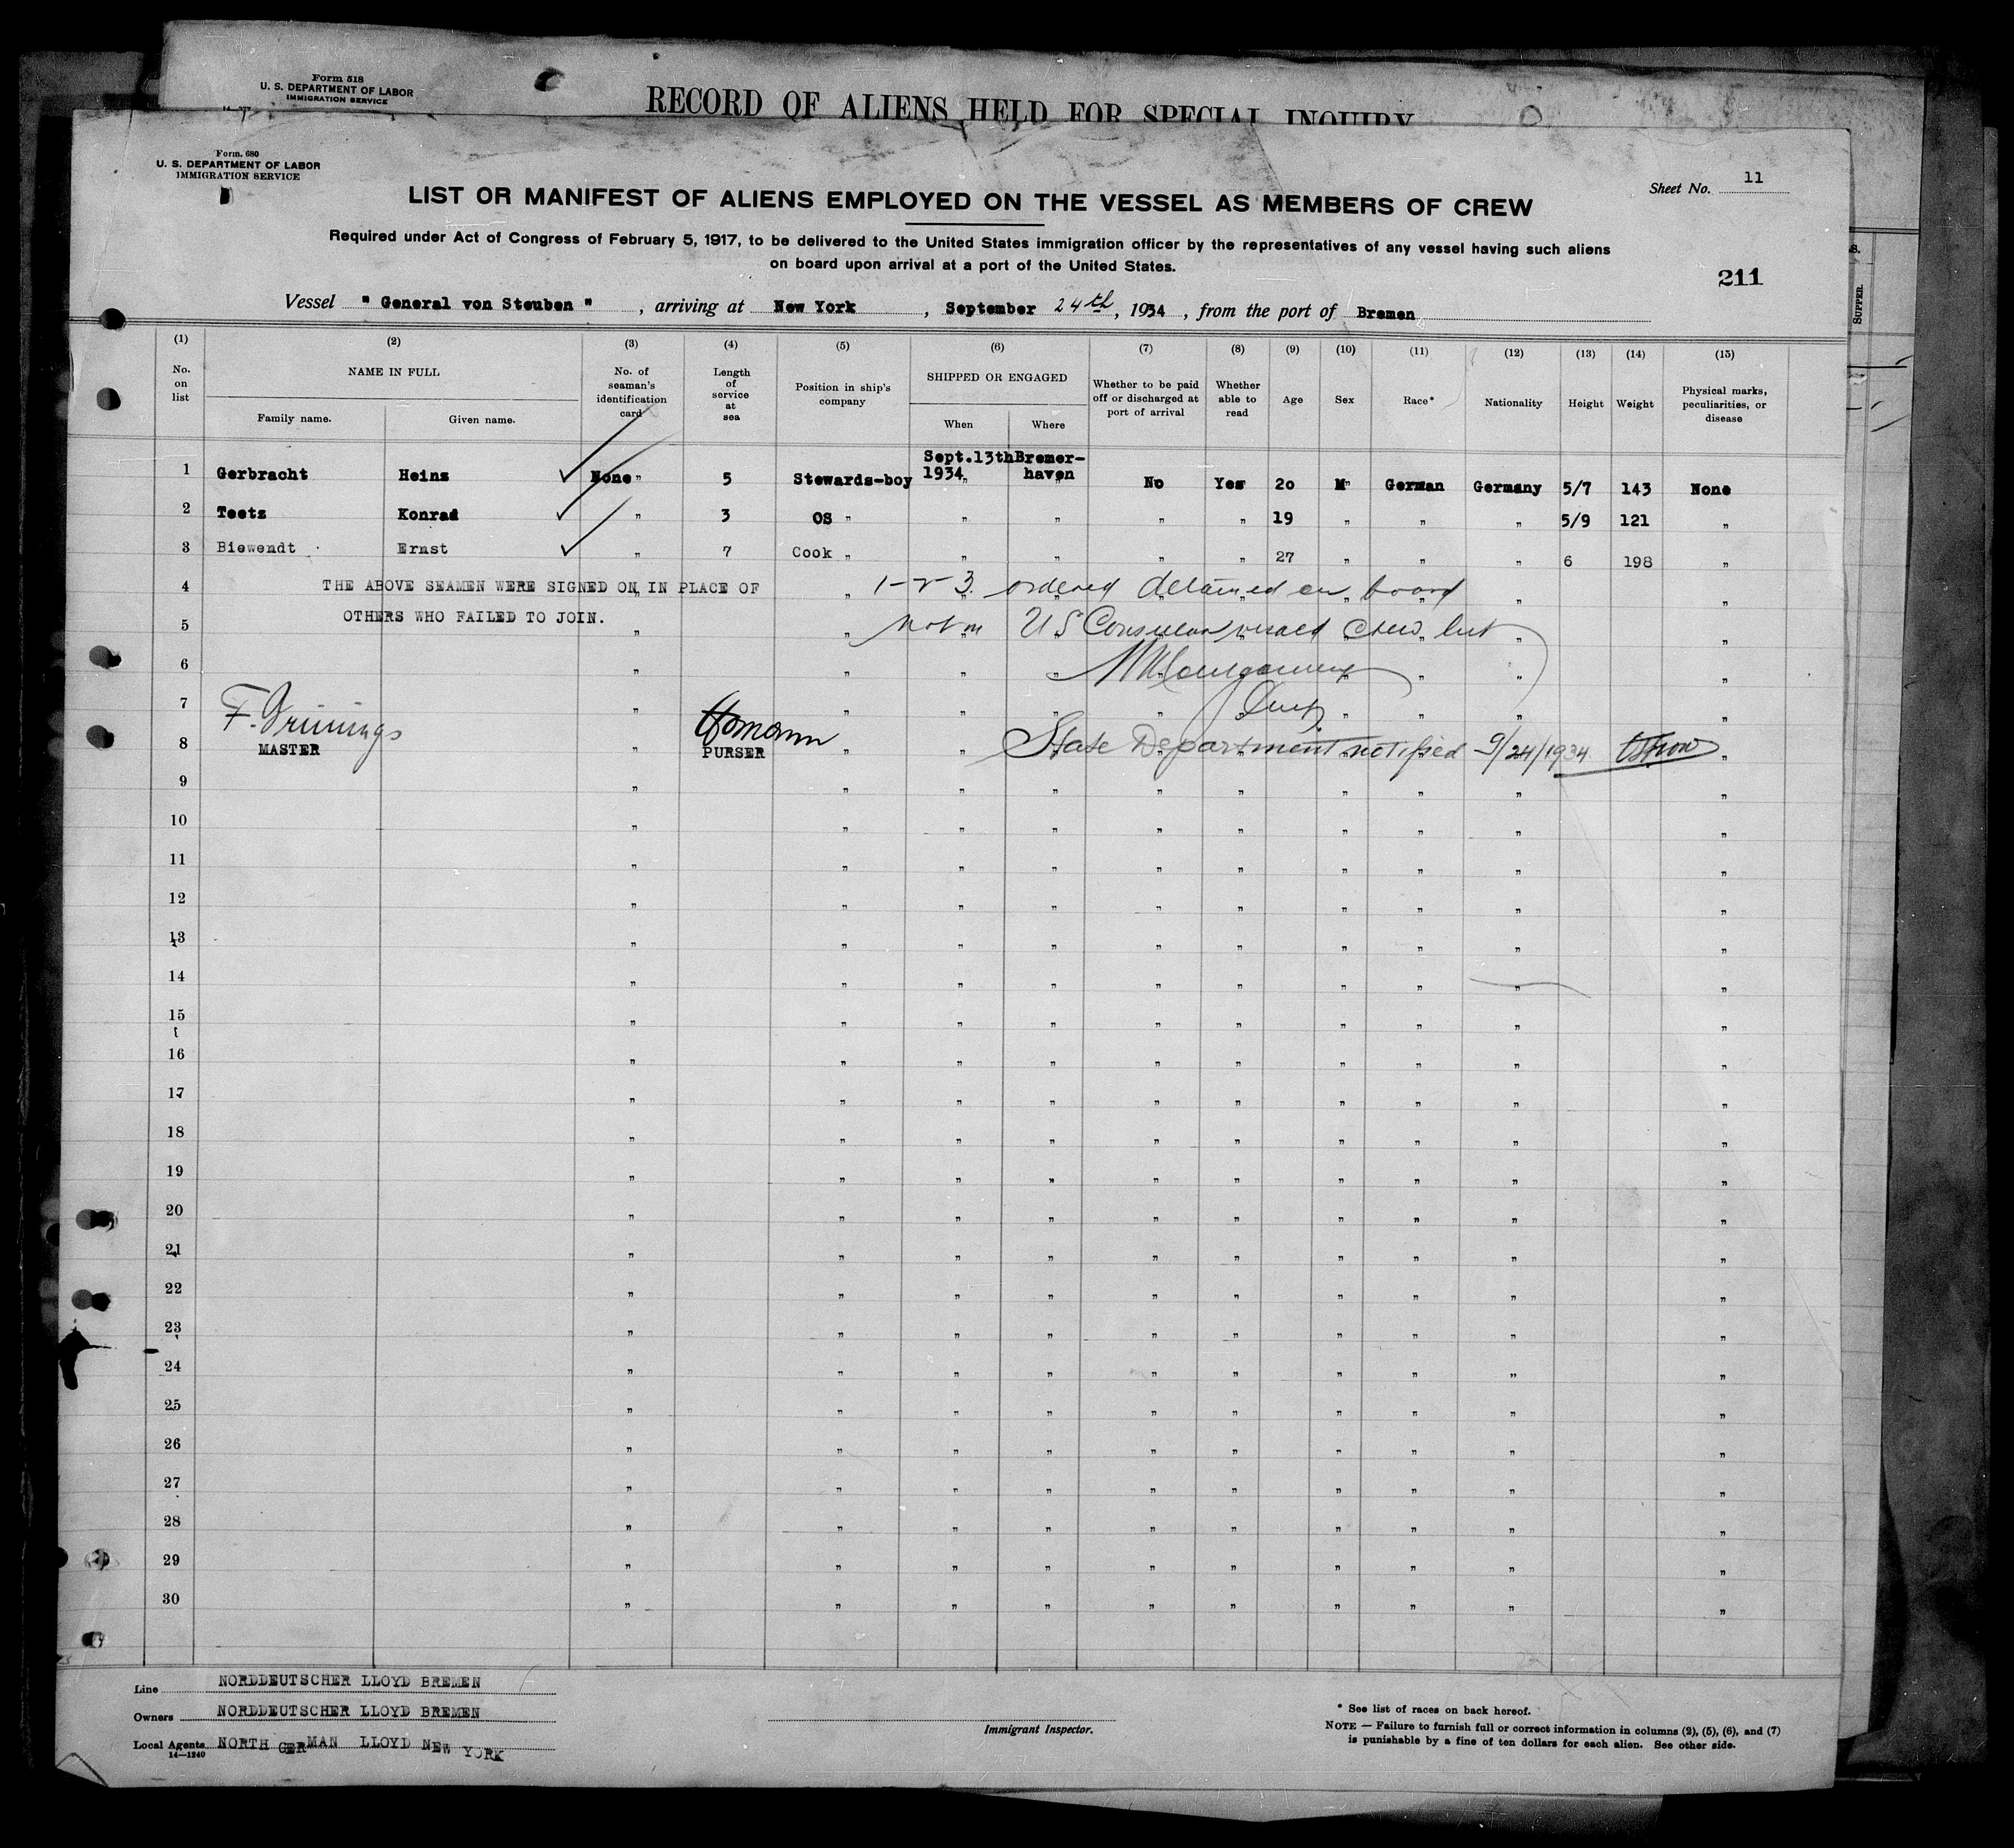 Form 518
U. S. DEPARTMENT OF LABOR
IMMIGRATION SERVICE
RECORD OF ALIENS HELD FOR SPECIAL INQUIRY
Form. 680
U. S. DEPARTMENT OF LABOR
IMMIGRATION SERVICE
Sheet No. 11
LIST OR MANIFEST OF ALIENS EMPLOYED ON THE VESSEL AS MEMBERS OF CREW
Required under Act of Congress of February 5, 1917, to be delivered to the United States immigration officer by the representatives of any vessel having such aliens
on board upon arrival at a port of the United States.
211
SUPPER.
Vessel " General von Steuben " , arriving at New York , September 24th, 1934 , from the port of Bremen
(1) (2) (3) (4) (5) (6) (7) (8) (9) (10) (11) (12) (13) (14) (15)
No. on list
NAME IN FULL
Family name. Given name.
No. of seaman's identification card
Length of service at sea
Position in ship's company
SHIPPED OR ENGAGED
When Where
Whether to be paid off or discharged at port of arrival
Whether able to read
Age
Sex
Race*
Nationality
Height
Weight
Physical marks, peculiarities, or disease
1 Gerbracht Heinz None " 5 Stewards-boy Sept.13th 1934 " Bremer-haven " No Yes 20 M " German Germany 5/7 143 None
2 Teetz Konrad " 3 OS " " " " " 19 " " " 5/9 121 "
3 Biewendt Ernst " 7 Cook " " " " " 27 " " " 6 198 "
4 THE ABOVE SEAMEN WERE SIGNED ON IN PLACE OF 1-2-3. ordered detained on board
5 OTHERS WHO FAILED TO JOIN. not on US Consular visaed crew list
6
7
8 MASTER PURSER State Department notified 9/24/1934
9 " " " " " " " " " "
10 " " " " " " " " " "
11 " " " " " " " " " "
12 " " " " " " " " " "
13 " " " " " " " " " "
14 " " " " " " " " " "
15 " " " " " " " " " "
16 " " " " " " " " " "
17 " " " " " " " " " "
18 " " " " " " " " " "
19 " " " " " " " " " "
20 " " " " " " " " " "
21 " " " " " " " " " "
22 " " " " " " " " " "
23 " " " " " " " " " "
24 " " " " " " " " " "
25 " " " " " " " " " "
26 " " " " " " " " " "
27 " " " " " " " " " "
28 " " " " " " " " " "
29 " " " " " " " " " "
30 " " " " " " " " " "
Line NORDDEUTSCHER LLOYD BREMEN
Owners NORDDEUTSCHER LLOYD BREMEN
Local Agents NORTH GERMAN LLOYD NEW YORK
14—1240
Immigrant Inspector.
* See list of races on back hereof.
NOTE — Failure to furnish full or correct information in columns (2), (5), (6), and (7)
is punishable by a fine of ten dollars for each alien. See other side.